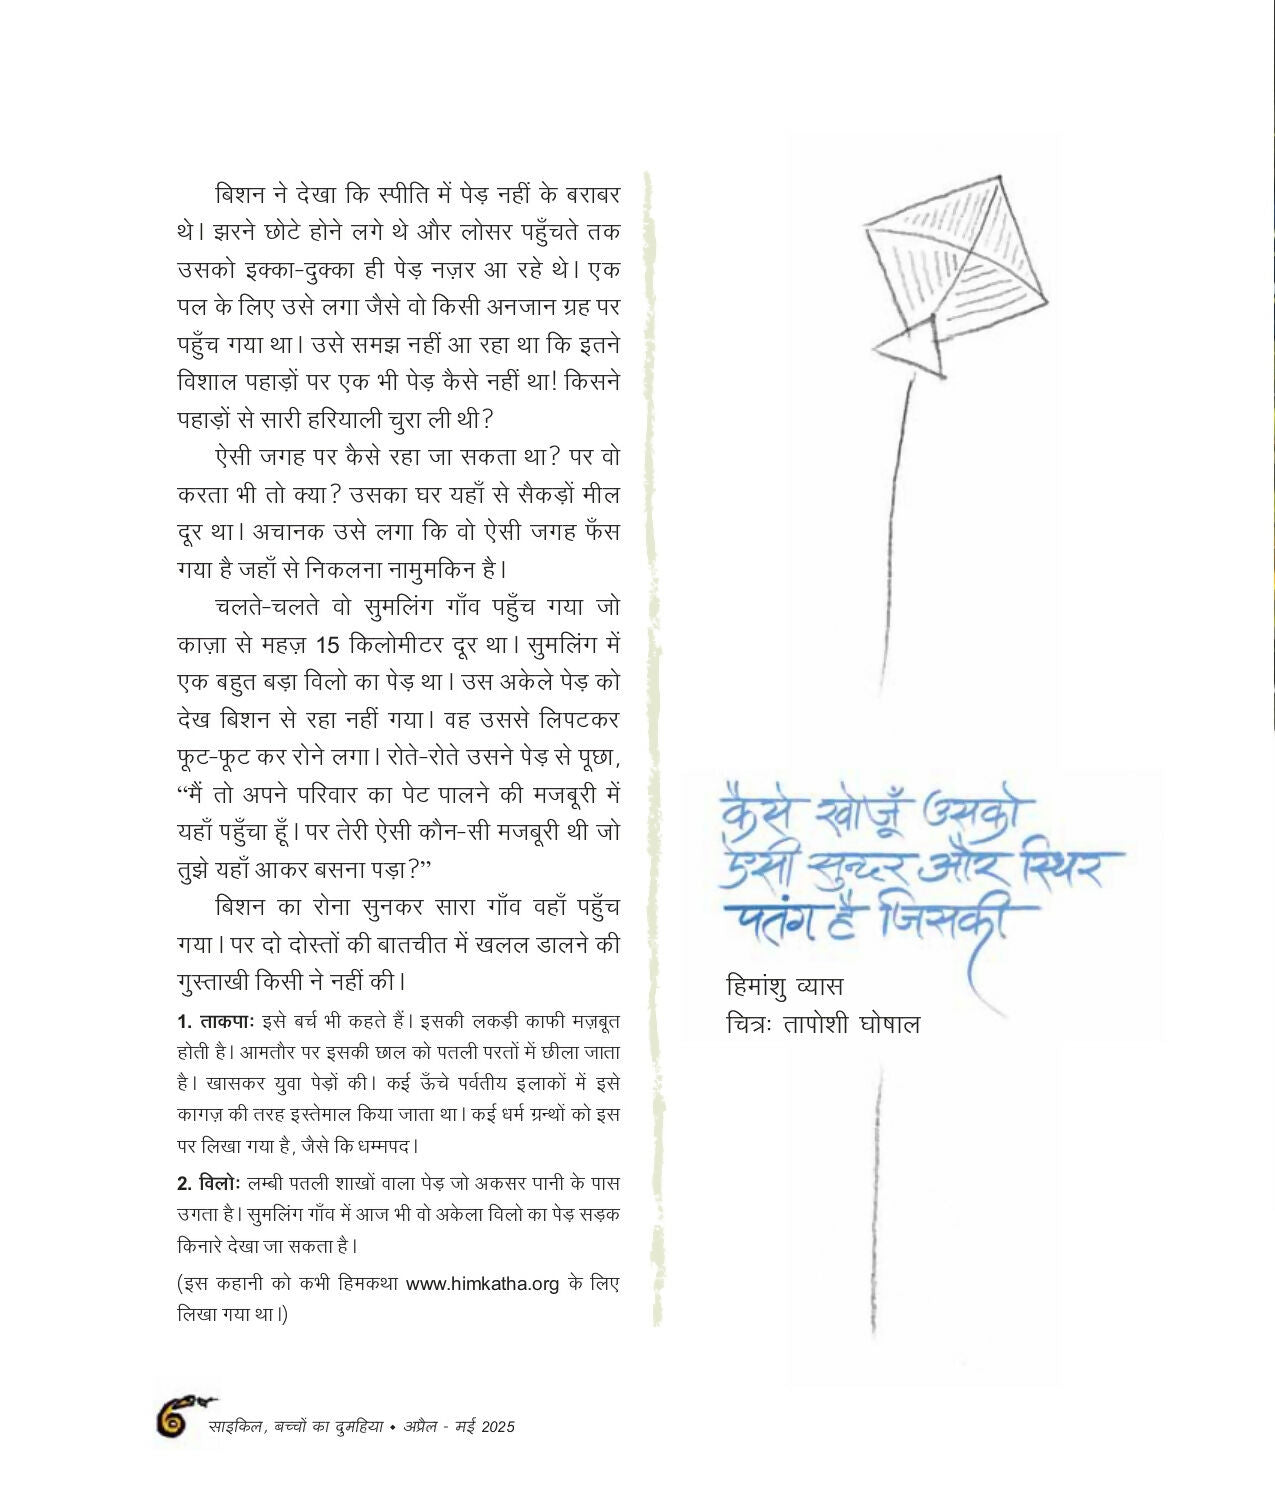 बिशन ने देखा कि स्पीति में पेड़ नहीं के बराबर
थे। झरने छोटे होने लगे थे और लोसर पहुँचते तक
उसको इक्का-दुक्का ही पेड़ नज़र आ रहे थे। एक
पल के लिए उसे लगा जैसे वो किसी अनजान ग्रह पर
पहुँच गया था। उसे समझ नहीं आ रहा था कि इतने
विशाल पहाड़ों पर एक भी पेड़ कैसे नहीं था! किसने
पहाड़ों से सारी हरियाली चुरा ली थी?
ऐसी जगह पर कैसे रहा जा सकता था? पर वो
करता भी तो क्या? उसका घर यहाँ से सैकड़ों मील
दूर था। अचानक उसे लगा कि वो ऐसी जगह फँस
गया है जहाँ से निकलना नामुमकिन है।
चलते-चलते वो सुमलिंग गाँव पहुँच गया जो
काज़ा से महज़ 15 किलोमीटर दूर था। सुमलिंग में
एक बहुत बड़ा विलो का पेड़ था। उस अकेले पेड़ को
देख बिशन से रहा नहीं गया। वह उससे लिपटकर
फूट-फूट कर रोने लगा। रोते-रोते उसने पेड़ से पूछा,
“मैं तो अपने परिवार का पेट पालने की मजबूरी में
यहाँ पहुँचा हूँ। पर तेरी ऐसी कौन-सी मजबूरी थी जो
तुझे यहाँ आकर बसना पड़ा?”
बिशन का रोना सुनकर सारा गाँव वहाँ पहुँच
गया। पर दो दोस्तों की बातचीत में खलल डालने की
गुस्ताखी किसी ने नहीं की।
1. ताकपाः इसे बर्च भी कहते हैं। इसकी लकड़ी काफी मज़बूत
होती है। आमतौर पर इसकी छाल को पतली परतों में छीला जाता
है। खासकर युवा पेड़ों की। कई ऊँचे पर्वतीय इलाकों में इसे
कागज़ की तरह इस्तेमाल किया जाता था। कई धर्म ग्रन्थों को इस
पर लिखा गया है, जैसे कि धम्मपद।
2. विलोः लम्बी पतली शाखों वाला पेड़ जो अकसर पानी के पास
उगता है। सुमलिंग गाँव में आज भी वो अकेला विलो का पेड़ सड़क
किनारे देखा जा सकता है।
(इस कहानी को कभी हिमकथा www.himkatha.org के लिए
लिखा गया था।)
कैसे खोजूँ उसको
ऐसी सुन्दर और स्थिर
पतंग है जिसकी
हिमांशु व्यास
चित्रः तापोशी घोषाल
6 साइकिल, बच्चों का दुमहिया • अप्रैल - मई 2025